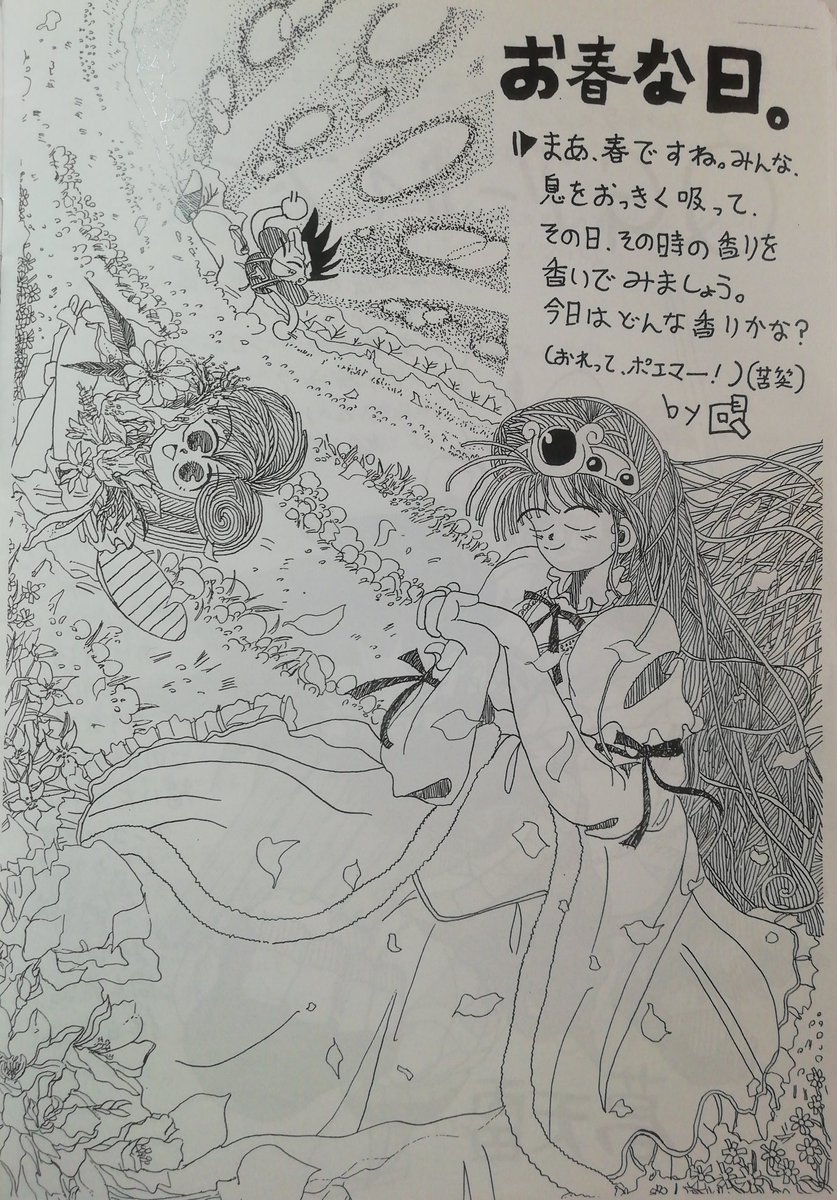 お春な日。
まあ、春ですね。みんな、
息をおっきく吸って、
その日、その時の香りを
香いでみましょう。
今日はどんな香りかな?
(おれって、ポエマー!)(苦笑)
by